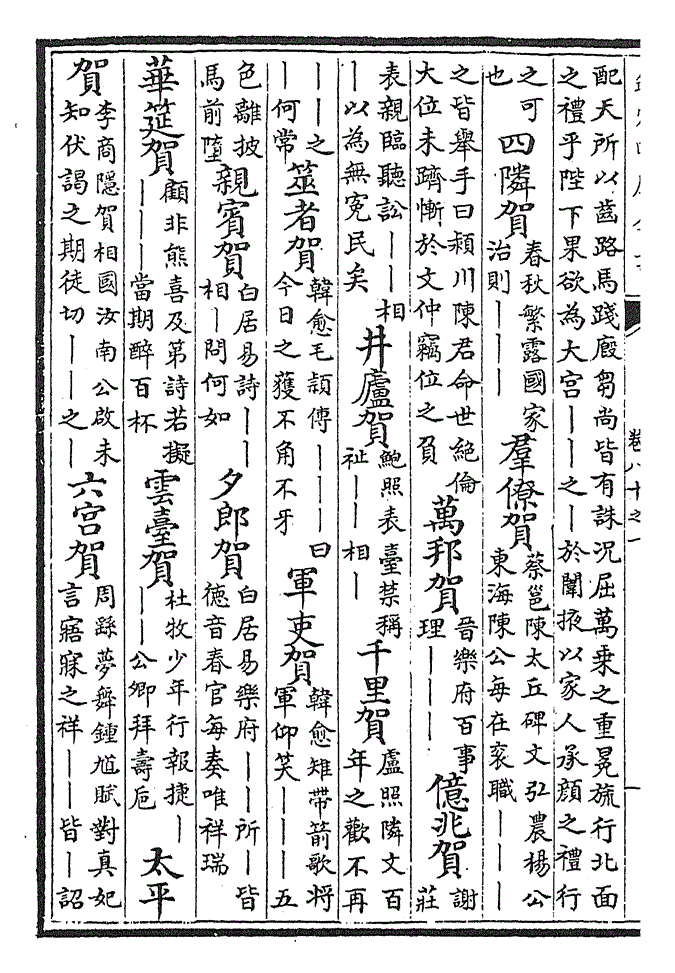 卷八十之一
配天所以齒路馬踐廄芻尚皆有誅况屈萬乘之重冕旒行北面
之禮乎陛下果欲為大宫——之—於闈掖以家人承顔之禮行
之可也 四隣賀 春秋繁露國家治則——— 羣僚賀 蔡邕陳太丘碑文弘農楊公東海陳公每在衮職———
之皆舉手曰潁川陳君命世絶倫大位未躋慚於文仲竊位之負 萬邦賀 晉樂府百事理——— 億兆賀 謝莊
表親臨聽訟——相—以為無冤民矣 井廬賀 鮑照表臺禁稱祉——相— 千里賀 盧照隣文百年之歡不再
———之—何常 筮者賀 韓愈毛穎傳———曰今日之獲不角不牙 軍吏賀 韓愈雉帶箭歌將軍仰笑———五
色離披馬前墮 親賓賀 白居易詩——相—問何如 夕郎賀 白居易樂府——所—皆德音春官每奏唯祥瑞
華筵賀 顧非熊喜及第詩若擬———當期醉百杯 雲臺賀 杜牧少年行報捷———公卿拜壽巵 太平
賀 李商隱賀相國汝南公啟未知伏謁之期徒切——之— 六宫賀 周繇夢舞鍾馗賦對真妃言寤寐之祥——皆—詔